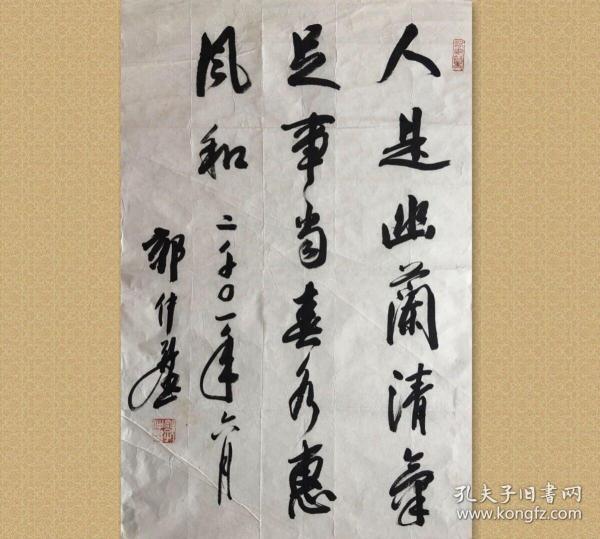 人是幽蘭清氣
足事當春惠
風和 二千〇一年六月
郭仲選
孔夫子旧書网
www.kongfz.com